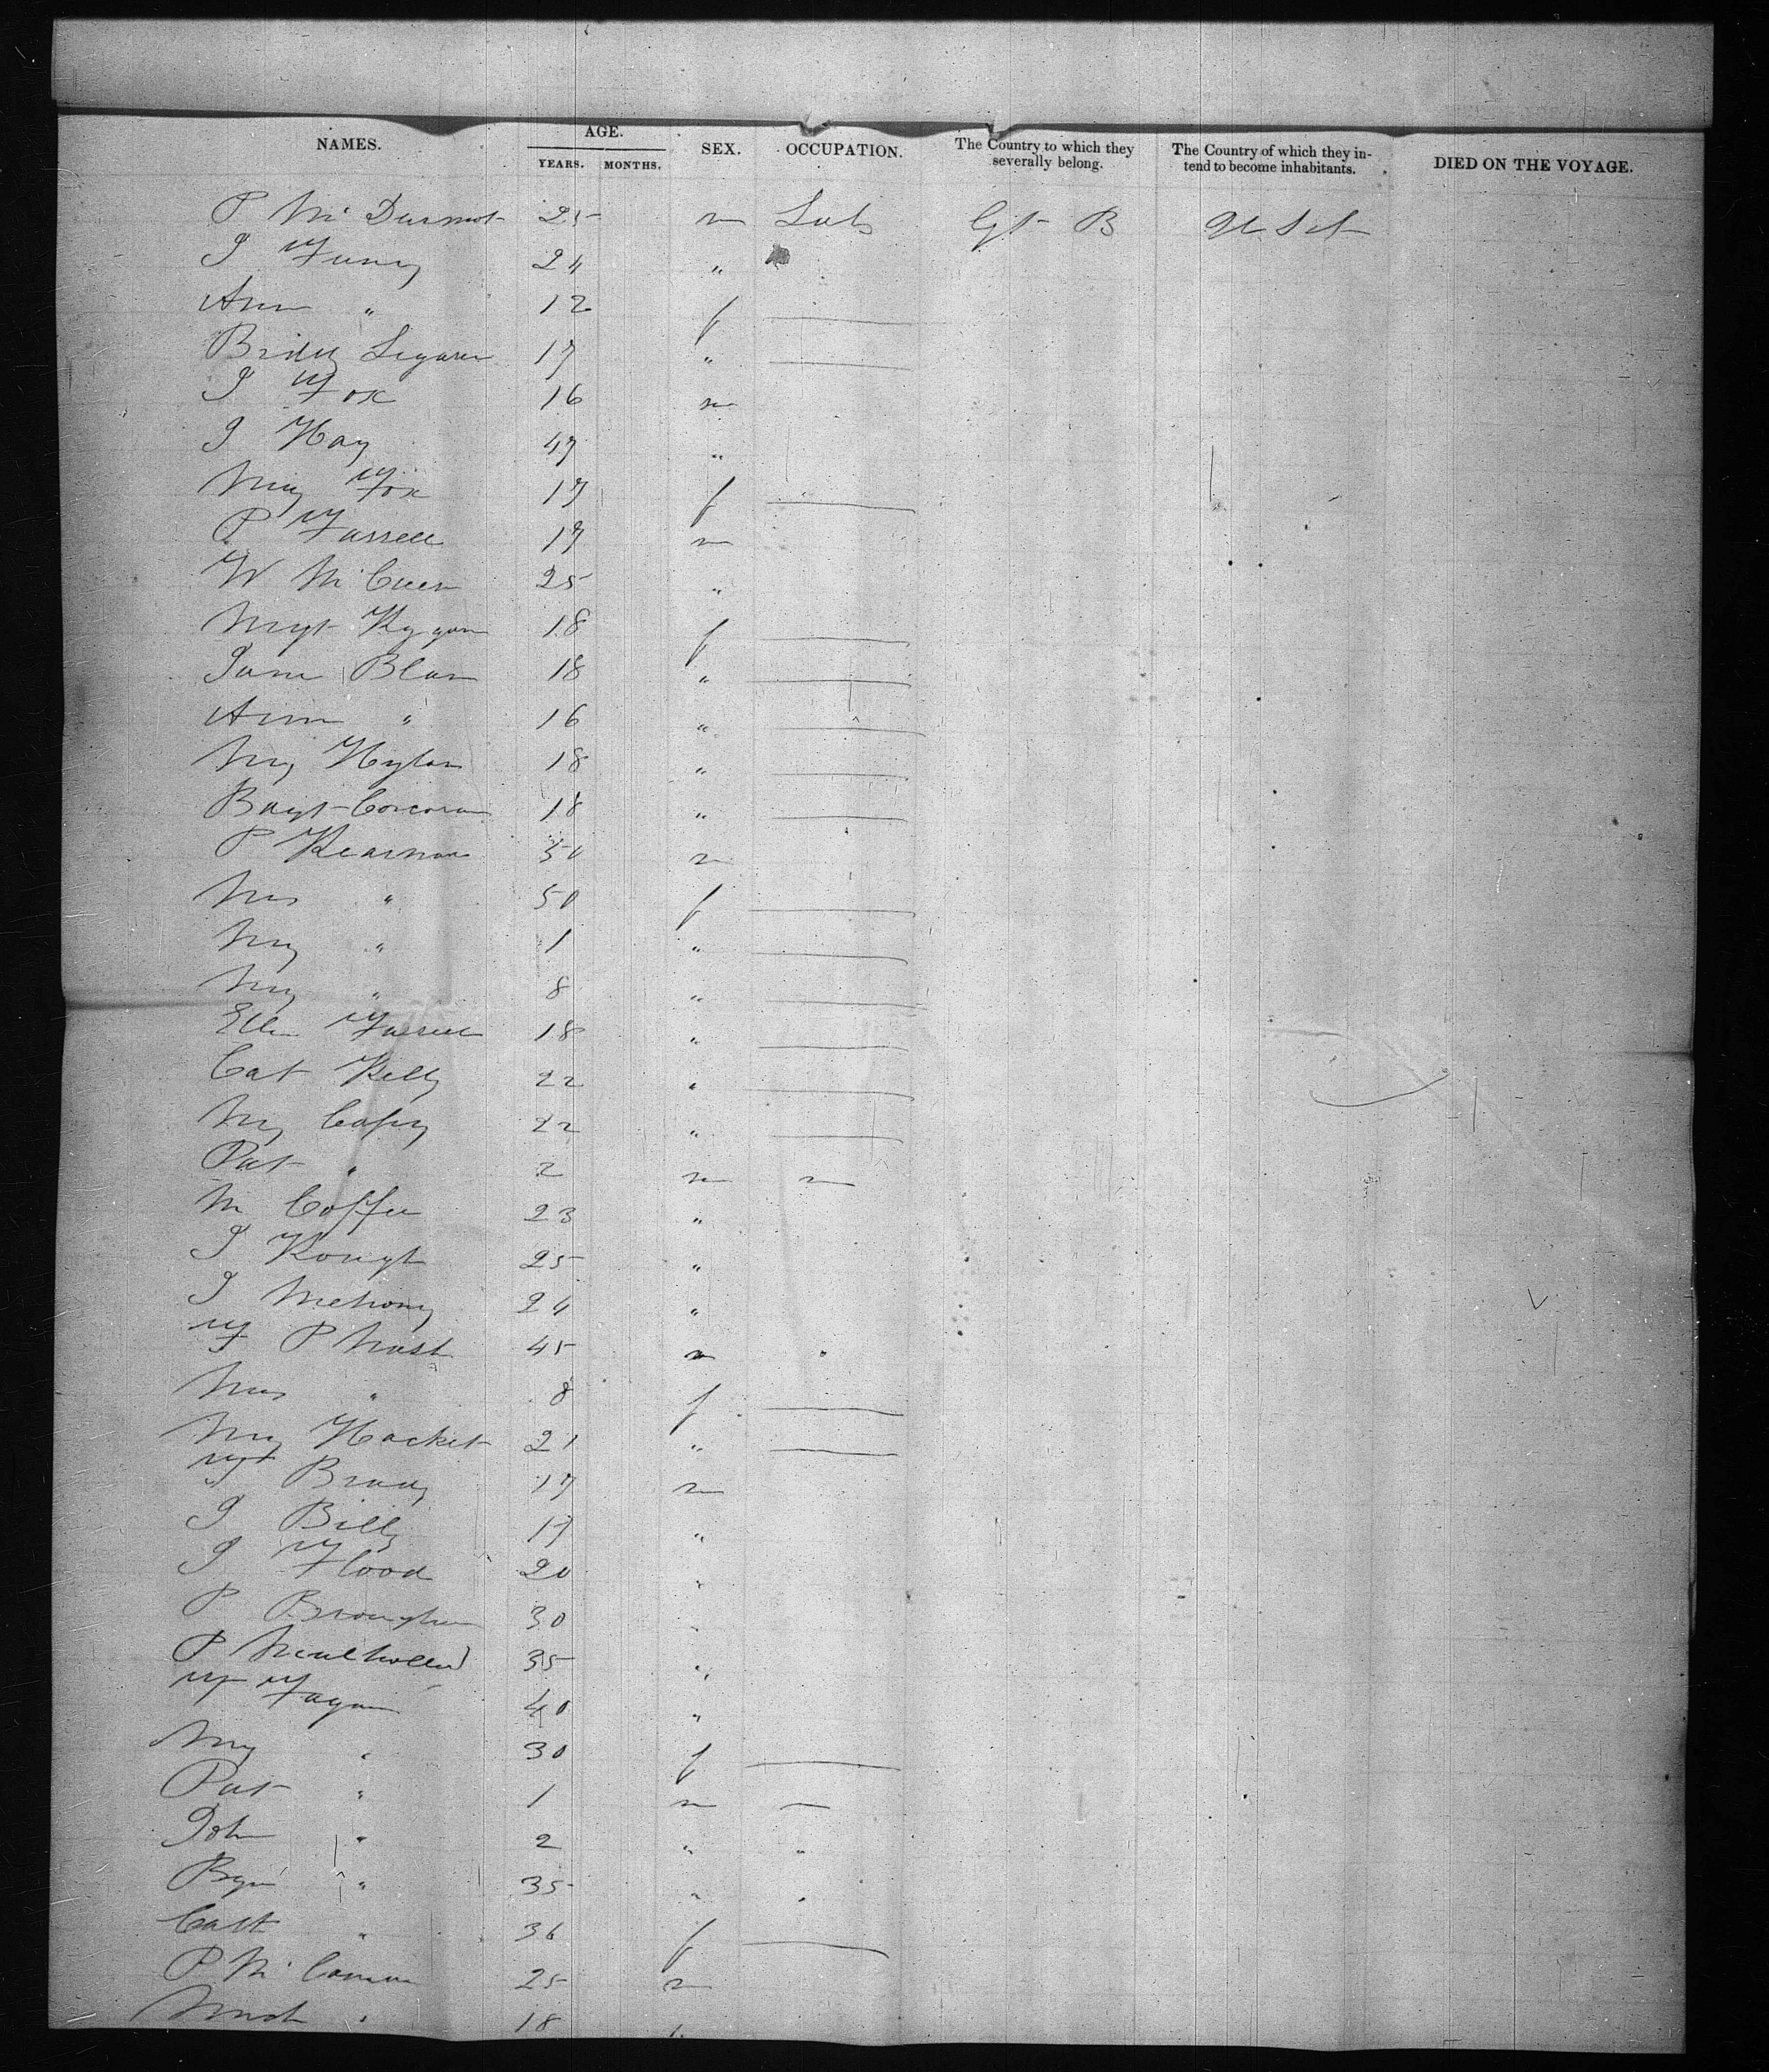 NAMES. AGE. YEARS. MONTHS. SEX. OCCUPATION. The Country to which they severally belong. The Country of which they intend to become inhabitants. DIED ON THE VOYAGE.
P McDurmot 25 m Lab Gt B U St
J 24 "
Ann " 12 f
Bridg 17 "
J Fox 16 m
J Hay 47 "
My Fox 17 f
P Farrell 17 m
W McCuen 25 "
Mgt 18 f
Jane Blan 18 "
Ann " 16 "
My Hylan 18 "
Corcoran 18 "
P Kearnan 50 m
Mrs " 50 f
My " 1 "
My " 8 "
Ellen Farrell 18 "
Cat Kelly 22 "
My 22 "
Pat " 2 m
M Coffee 23 "
J Kough 25 "
J Mehony 24 "
F P Nash 45 m "
" 8 f
My Hacket 21 "
Brady 17 m
J Billy 17 "
J Flood 20 "
P Broughan 30 "
P Mulholland 35 "
Fagan 40 "
My " 30 f
Pat " 1 m
John " 2 " "
" 35 " "
Cath " 36 f
P McCannon 25 m
" 18